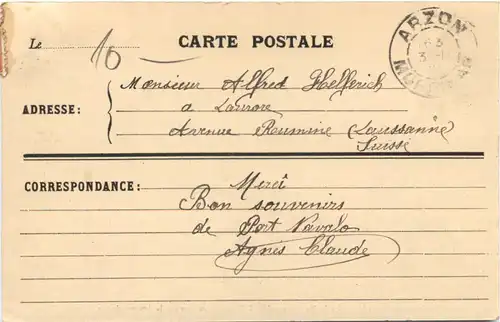 Le
10
CARTE POSTALE
ARZON
MORBIHAN
ADRESSE:
Monsieur Alfred Helferich
a Laurore
Avenue Rumine (Laussanne
Suisse
CORRESPONDANCE:
Merci
Bon souvenirs
de Port Navalo
Agnès Claude